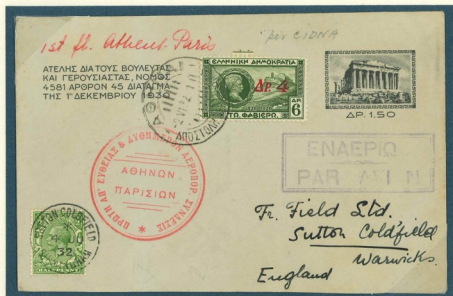 1st fl. Athens-Paris
per CIDNA
ΑΤΕΛΗΣ ΔΙΑ ΤΟΥΣ ΒΟΥΛΕΥΤΑΣ
ΚΑΙ ΓΕΡΟΥΣΙΑΣΤΑΣ, ΝΟΜΟΣ
4581 ΑΡΘΡΟΝ 45 ΔΙΑΤΑΓΜΑ
ΤΗΣ 1ΗΣ ΔΕΚΕΜΒΡΙΟΥ 1930
ΕΛΛΗΝΙΚΗ ΔΗΜΟΚΡΑΤΙΑ
ΔΡ. 4
ΔΡ. 6
ΤΟ. ΦΑΒΙΕΡΩ.
ΔΡ. 1.50
ΑΠΟΣΤΟΛΗ
ΠΡΩΤΗ ΑΠ' ΕΥΘΕΙΑΣ & ΑΥΘΗΜΕΡΟΝ ΑΕΡΟΠΟΡ. ΣΥΝΔΕΣΙΣ
ΑΘΗΝΩΝ
ΠΑΡΙΣΙΩΝ
ΕΝΑΕΡΙΩ
PAR AVION
SUTTON COLDFIELD
32
HALFPENNY
Fr. Field Ltd.
Sutton Coldfield
Warwicks.
England